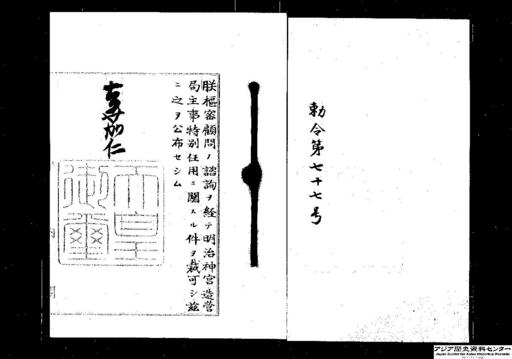 勅令第七十七号
朕樞密顧問ノ諮詢ヲ経テ明治神宮造営
局主事特別任用ニ関スル件ヲ裁可シ茲
ニ之ヲ公布セシム
嘉仁
天皇
御璽
アジア歴史資料センター
Japan Center for Asian Historical Records